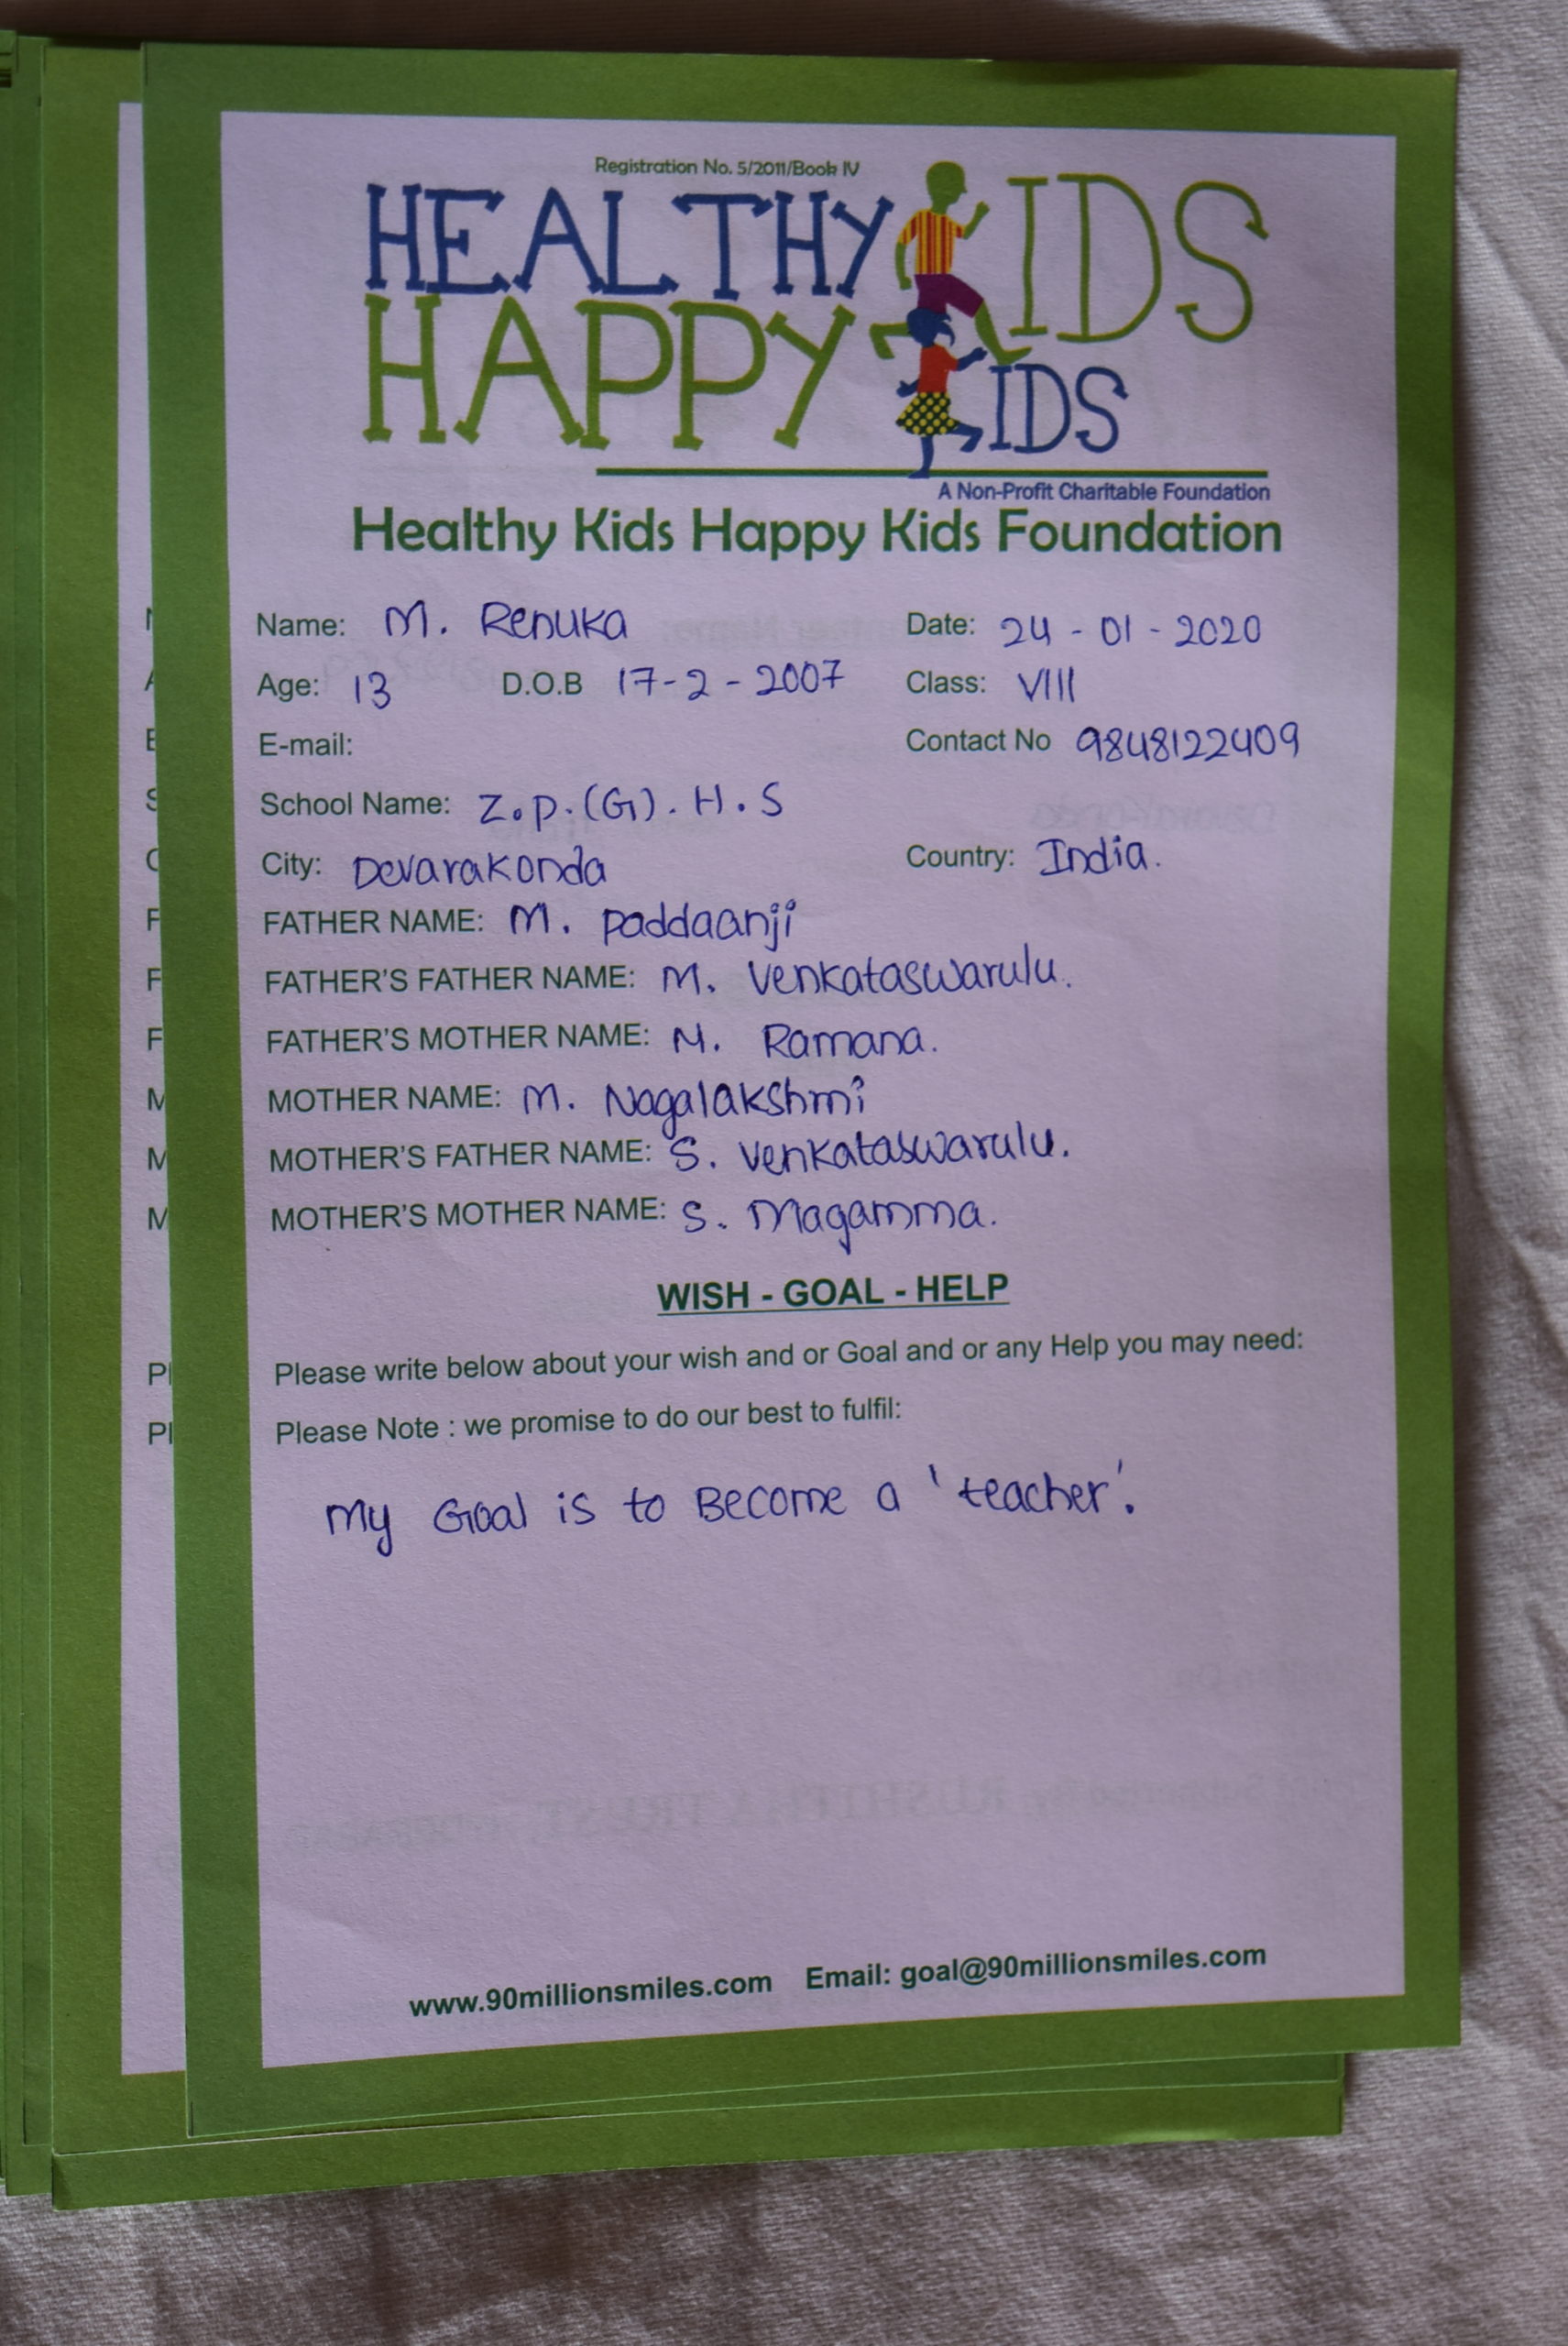 Registration No. 5/2011/Book IV
HEALTHY KIDS
HAPPY KIDS
A Non-Profit Charitable Foundation
Healthy Kids Happy Kids Foundation
Name: M. Renuka Date: 24 - 01 - 2020
Age: 13 D.O.B 17-2-2007 Class: VIII
E-mail: Contact No 9848122409
School Name: Z.p.(G). H.S
City: Devarakonda Country: India.
FATHER NAME: M. paddaanji
FATHER'S FATHER NAME: M. Venkataswarulu.
FATHER'S MOTHER NAME: M. Ramana.
MOTHER NAME: M. Nagalakshmi
MOTHER'S FATHER NAME: S. Venkataswarulu.
MOTHER'S MOTHER NAME: S. Magamma.
WISH - GOAL - HELP
Please write below about your wish and or Goal and or any Help you may need:
Please Note : we promise to do our best to fulfil:
My Goal is to Become a 'teacher'.
www.90millionsmiles.com Email: goal@90millionsmiles.com